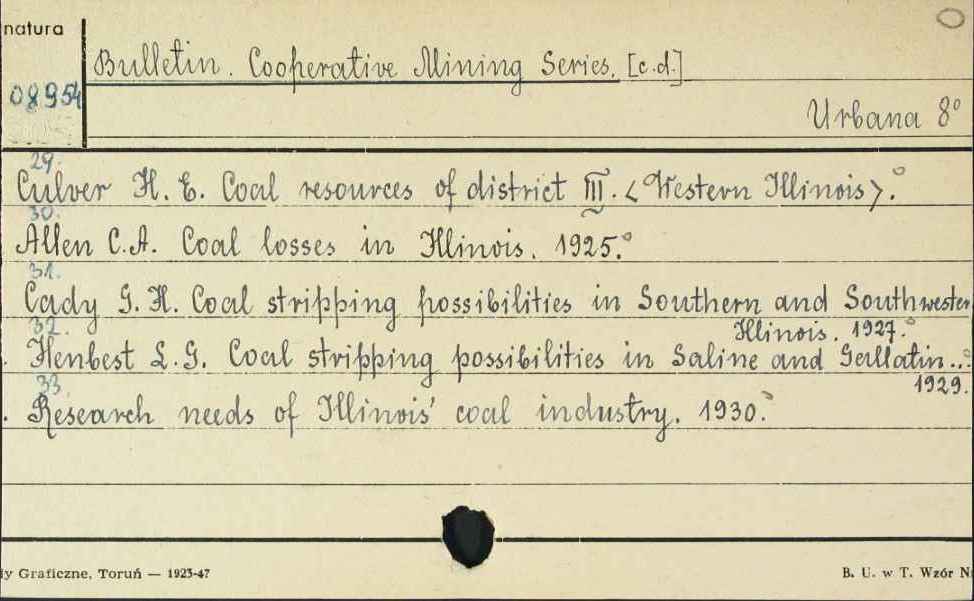 natura
Bulletin. Cooperative Mining Series. [c.d.]
08954
Urbana 8°
29.
Culver H. E. Coal resources of district III. <Western Illinois>.°
30.
Allen C.A. Coal losses in Illinois. 1925.°
31.
Cady G. H. Coal stripping possibilities in Southern and Southwester
Illinois. 1927.°
32.
Henbest L. G. Coal stripping possibilities in Saline and Gallatin...°
1929.
33.
Research needs of Illinois' coal industry. 1930.°
dy Graficzne, Toruń — 1923-47
B. U. w T. Wzór N